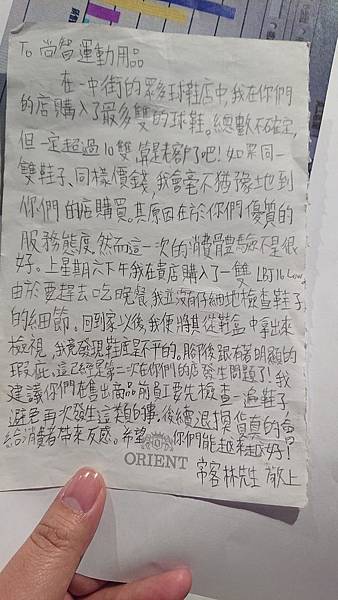 To 尚智運動用品
在一中街的眾多球鞋店中,我在你們
的店購入了最多雙的球鞋。總數不確定,
但一定超過10雙,算是老客戶了吧!如果同一
雙鞋子、同樣價錢,我會毫不猶豫地到
你們的店購買。其原因在於你們優質的
服務態度,然而這一次的消費體驗不是很
好。上星期六下午我在貴店購入了一雙 LBJ16 Low,
由於要趕去吃晚餐,我並沒有仔細地檢查鞋子
的細節。回到家以後,我便將其從鞋盒中拿出來
檢視,我竟發現鞋底是不平的。腳後跟有著明顯的
瑕疵,這已經是第二次在你們的店發生問題了!我
建議你們在售出商品前員工要先檢查一遍鞋子,
避免再次發生這類的事,後續退換貨真的會
給消費者帶來反感。希望你們能越來越好!
ORIENT
常客林先生 敬上